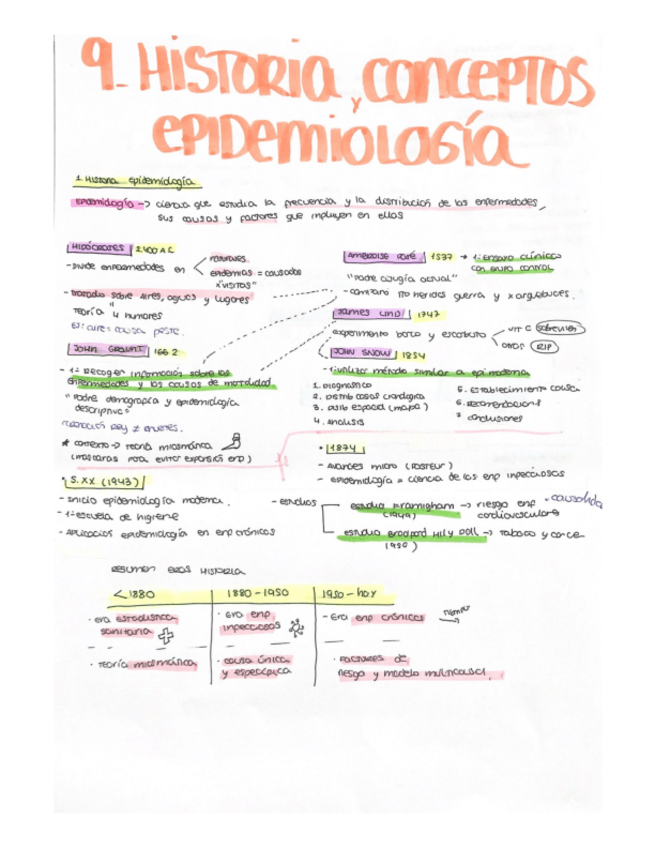 9. HISTORIA y CONCEPTOS
EPIDEMIOLOGÍA
1. Historia epidemiología
Epidemiología -> ciencia que estudia la frecuencia y la distribución de las enfermedades,
sus causas y factores que influyen en ellas
HIPÓCRATES 2400 A.C
- Divide enfermedades en
epidemias = causadas
x "VISITAS"
- tratado sobre aires, aguas y lugares
Teoría 4 humores
JOHN GRAUNT 1662
- 1º Recoger información sobre las
enfermedades y las causas de mortalidad.
"Padre demografía y epidemiología
descriptiva"
* contexto -> teoría miasmática
(máscaras para evitar expansión enf)
S. XX (1943)
- Inicio epidemiología moderna.
- 1ª escuela de higiene
- Aplicación epidemiología en enf crónicas
AMBROISE PARÉ 1537 -> 1º ensayo clínico
con grupo control
"Padre cirugía actual"
- comparó tto heridas guerra y x arcabuces.
JAMES LIND 1747
experimento barco y escorbuto
VIT C sobreviven
OTROS RIP
JOHN SNOW 1854
- 1º utilizar método similar a epi moderna
1. Diagnóstico
2. Distrib casos cronológica
3. distrib espacial (mapa)
4. Análisis
5. Establecimiento causa
6. Recomendaciones
7. conclusiones
1874
- Avances micro (Pasteur)
- epidemiología = ciencia de las enf infecciosas
- estudios
estudio Framigham -> riesgo enf
cardiovasculares
(1949)
• causalidad
estudio Bradford Hill y Doll -> Tabaco y cáncer
1950)
RESUMEN ERAS HISTORIA
<1880
1880-1950
1950-hoy
· era estadística
sanitaria
· Era enf
infecciosas
- Era enf crónicas
· Teoría miasmática
· causa única
y específica
· Factores de
riesgo y modelo multicausal.